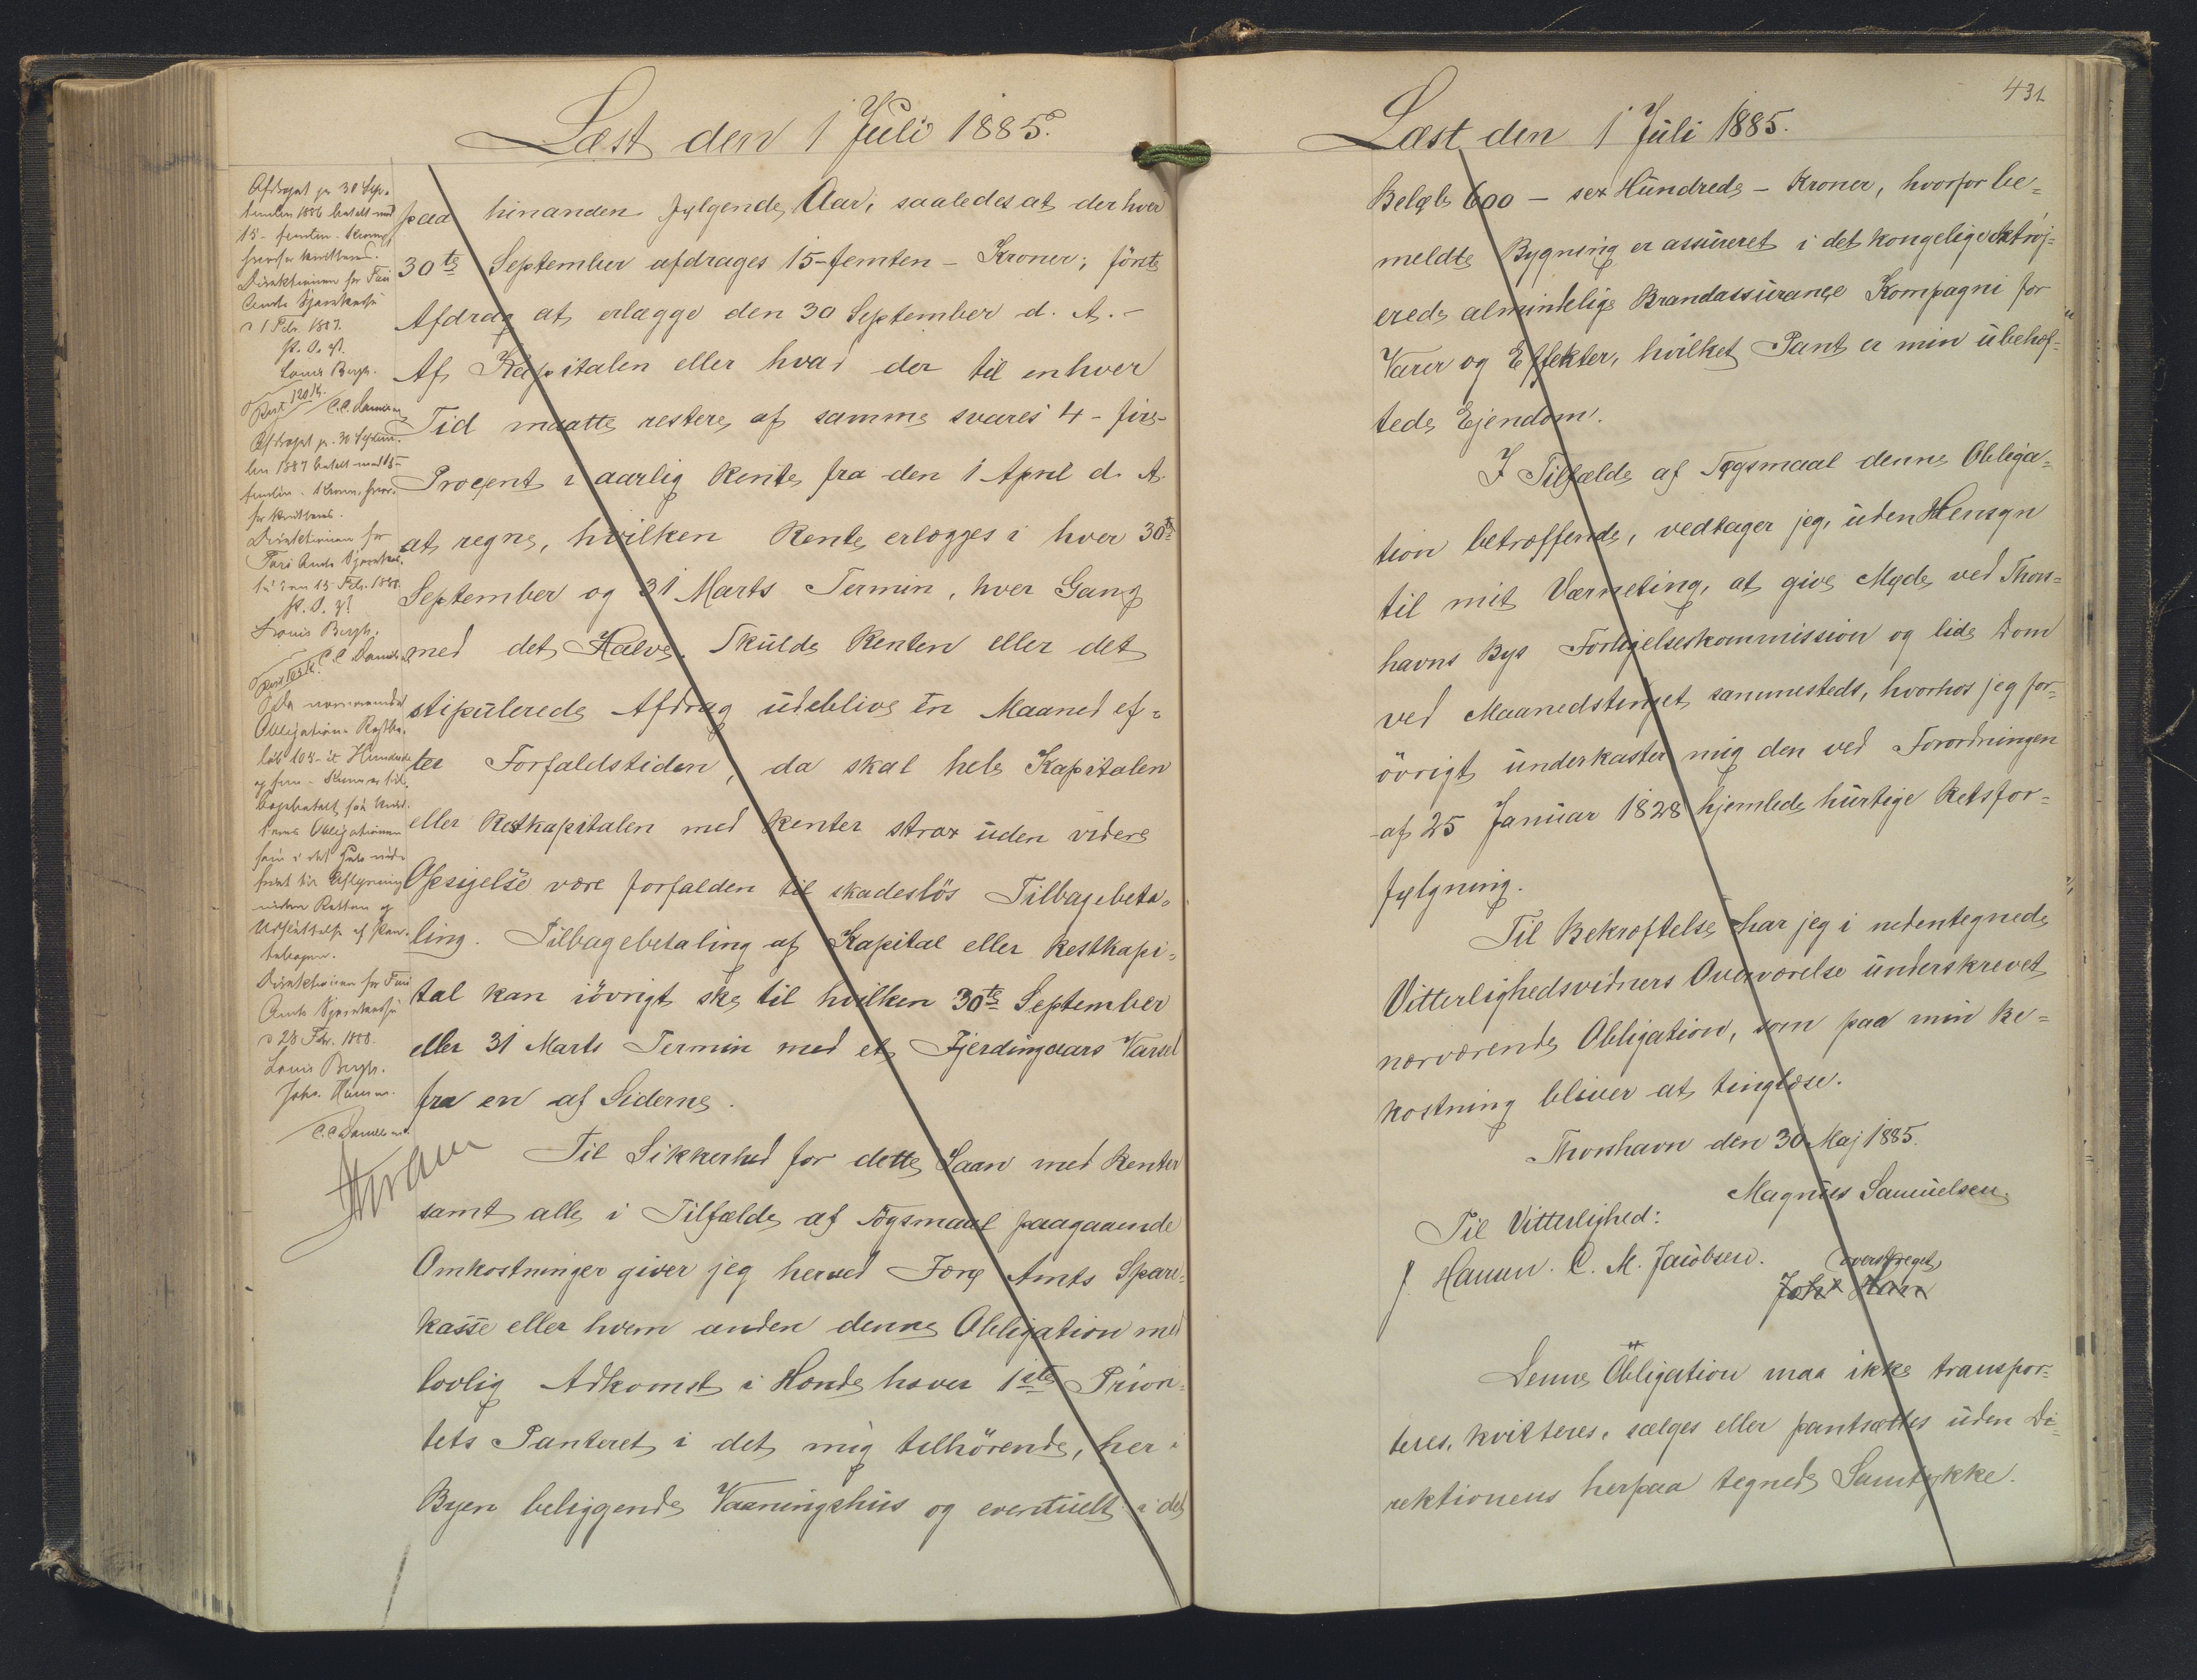 Læst den 1 Juli 1885.
Afdraget pr 30 Sep-
tember 1886 betalt med
15 - femten - Kroner,
hvorfor kvitteres.
Direktionen for Færø
Amts Sparekasse
d 1 Febr. 1887.
Louis Bergh.
Rest 120 Kr.
Afdraget pr. 30 Septem-
ber 1887 betalt med 15 -
femten - Kroner, hvor-
for kvitteres.
Direktionen for
Færø Amts Sparekas-
se den 15 Feb. 1888.
Louis Bergh.
C. C. Danielsen
Da nærværende
Obligations Restbe-
løb 105 - et Hundrede
og fem - Kroner er til-
bagebetalt, saa kvit-
teres Obligationen
som i det Hele ind-
friet til Aflysning
inden Retten og
Udslettelse af Pan-
tebogen.
Direktionen for Færø
Amts Sparekasse
d 28 Febr. 1888.
Louis Bergh.
Johs. Hansen.
C. C. Danielsen.
paa hinanden følgende Aar, saaledes at der hver
30te September afdrages 15 - femten - Kroner; første
Afdrag at erlægge den 30 September d. A. -
Af Kapitalen eller hvad der til enhver
Tid maatte restere af samme svares 4 - fire -
Procent i aarlig Rente fra den 1 April d. A.
at regne, hvilken Rente erlægges i hver 30te
September og 31 Marts Termin, hver Gang
med det Halve. Skulde Renten eller det
stipulerede Afdrag udeblive én Maaned ef-
ter Forfaldstiden, da skal hele Kapitalen
eller Restkapitalen med Renter strax uden videre
Opsigelse være forfalden til skadesløs Tilbagebeta-
ling. Tilbagebetaling af Kapital eller Restkapi-
tal kan iøvrigt ske til hvilken 30te September
eller 31 Marts Termin med et Fjerdingaars Varsel
fra en af Siderne.
Til Sikkerhed for dette Laan med Renter
samt alle i Tilfælde af Søgsmaal paagaaende
Omkostninger giver jeg herved Færø Amts Spare-
kasse eller hvem anden denne Obligation med
lovlig Adkomst i Hænde haver 1ste Priori-
tets Panteret i det mig tilhørende, her i
Byen beliggende Vaaningshus og eventuelt i det
431
Læst den 1 Juli 1885.
Beløb 600 - sex Hundrede - Kroner, hvorfor be-
meldte Bygning er assureret i det kongelige oktroj-
erede almindelige Brandassurance Kompagni for
Varer og Effekter, hvilket Pant er min ubehæf-
tede Ejendom.
I Tilfælde af Søgsmaal denne Obliga-
tion betræffende, vedtager jeg, uden Hensyn
til mit Værneting, at give Møde ved Thors-
havns Byes Forligelseskommission og lide Dom
ved Maanedstinget sammesteds, hvorhos jeg for-
øvrigt underkaster mig den ved Forordningen
af 25 Januar 1828 hjemlede hurtige Retsfor-
følgning.
Til Bekræftelse har jeg i nedentegnede
Vitterlighedsvidners Overværelse underskrevet
nærværende Obligation, som paa min Be-
kostning bliver at tinglæse.
Thorshavn den 30 Maj 1885.
Magnus Samuelsen.
Til Vitterlighed:
J. Hansen. C. M. Jacobsen. (overstreget)
Joh Han
Denne Obligation maa ikke transpor-
teres, kvitteres, sælges eller pantsættes uden Di-
rektionens herpaa tegnede Samtykke.